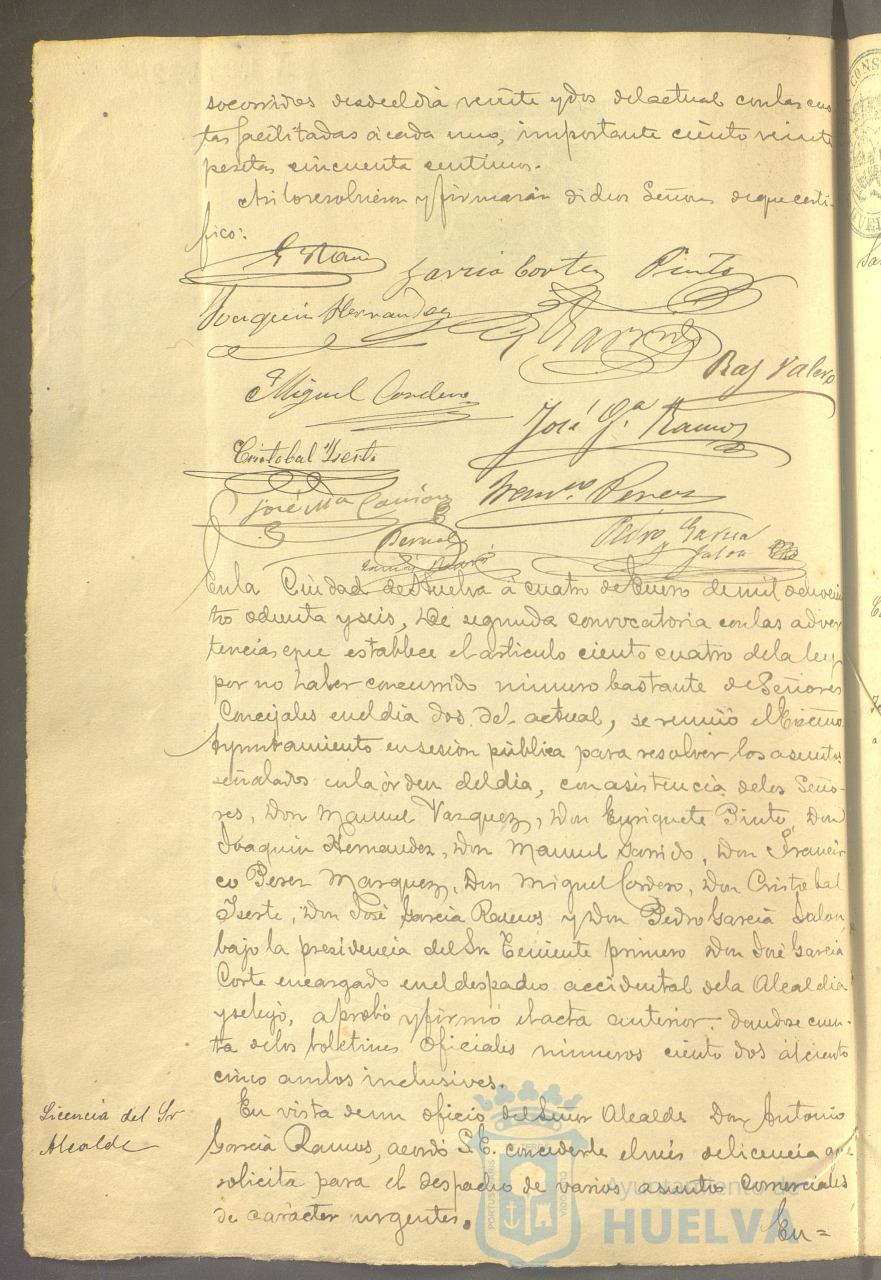 socorridos desde el dia veinte y dos del actual con las cuo
tas facilitadas á cada uno, importante ciento veinte
pesetas cincuenta centimos.
Asi lo resolvieron y firmarán dichos Señores de que certi-
fico:
García Cortes Pinto
Joaquin Hernandez
Garrido
Raf Valero
Miguel Cordero
José Ga Ramos
Cristobal Yserte
José Ma
Franco Perez
Bernal
Pedro Garcia
y Jalon
En la Ciudad de Huelva á cuatro de Enero de mil ochocien
tos ochenta y seis, de segunda convocatoria con las adver
tencias que establece el articulo ciento cuatro de la ley
por no haber concurrido número bastante de Señores
Concejales en el dia dos del actual, se reunió el Excmo
Ayuntamiento en sesión pública para resolver los asuntos
señalados en la órden del dia, con asistencia de los Seño-
res, Don Manuel Vazquez, Don Enriquete Pinto, Don
Joaquin Hernandez, Don Manuel Garrido, Don Francis
co Perez Marquez, Don Miguel Cordero, Don Cristobal
Yserte, Don José García Ramos y Don Pedro García Jalon,
bajo la presidencia del Sr. Teniente primero Don José García
Corte encargado en el despacho accidental de la Alcaldia
y se leyó, aprobó y firmó el acta anterior. dandose cuen-
ta de los boletines oficiales números ciento dos al ciento
cinco ambos inclusives.
Licencia del Sr
Alcalde
En vista de un oficio del Señor Alcalde Don Antonio
García Ramos, acordó S.E. concederle el mes de licencia que
solicita para el despacho de varios asuntos comerciales
de carácter urgentes.
En=
Ayuntamiento de
HUELVA